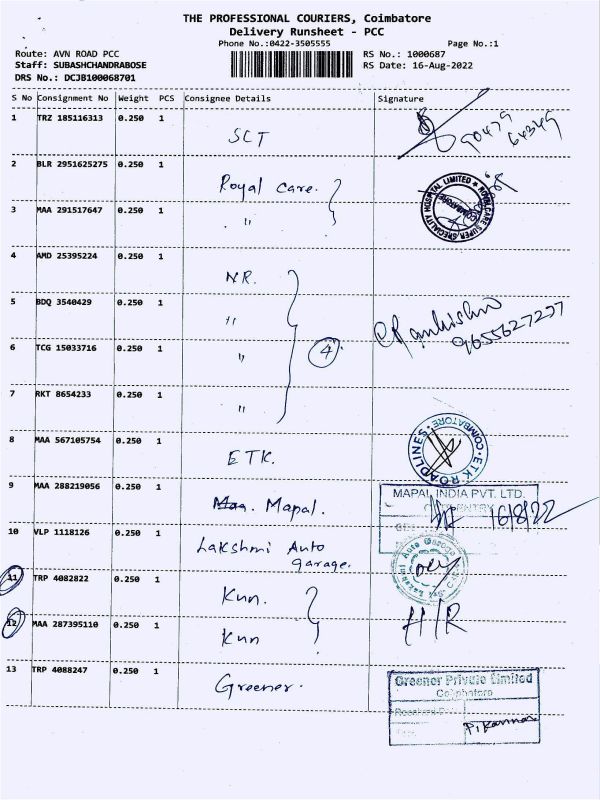 THE PROFESSIONAL COURIERS, Coimbatore
Delivery Runsheet - PCC
Phone No.:0422-3505555
Page No.:1
Route: AVN ROAD PCC
RS No.: 1000687
Staff: SUBASHCHANDRABOSE
RS Date: 16-Aug-2022
DRS No.: DCJB100068701
S No Consignment No Weight PCS Consignee Details Signature
1 TRZ 185116313 0.250 1 SCT
90479
64349
2 BLR 2951625275 0.250 1 Royal Care.
ROYAL CARE SUPER SPECIALITY HOSPITAL LIMITED
COIMBATORE
3 MAA 291517647 0.250 1 "
4 AMD 25395224 0.250 1 NR.
5 BDQ 3540429 0.250 1 "
9655627237
6 TCG 15033716 0.250 1 "
4
7 RKT 8654233 0.250 1 "
8 MAA 567105754 0.250 1 ETK.
ETK ROADLINES
COIMBATORE
9 MAA 288219056 0.250 1 Mapal.
MAPAL INDIA PVT. LTD.
16/8/22
10 VLP 1118126 0.250 1 Lakshmi Auto
garage.
Lakshmi Auto Garage
11 TRP 4082822 0.250 1 Kun.
H/R
12 MAA 287395110 0.250 1 Kun
13 TRP 4088247 0.250 1 Greener.
Greener Private Limited
Coimbatore
P. Kannan